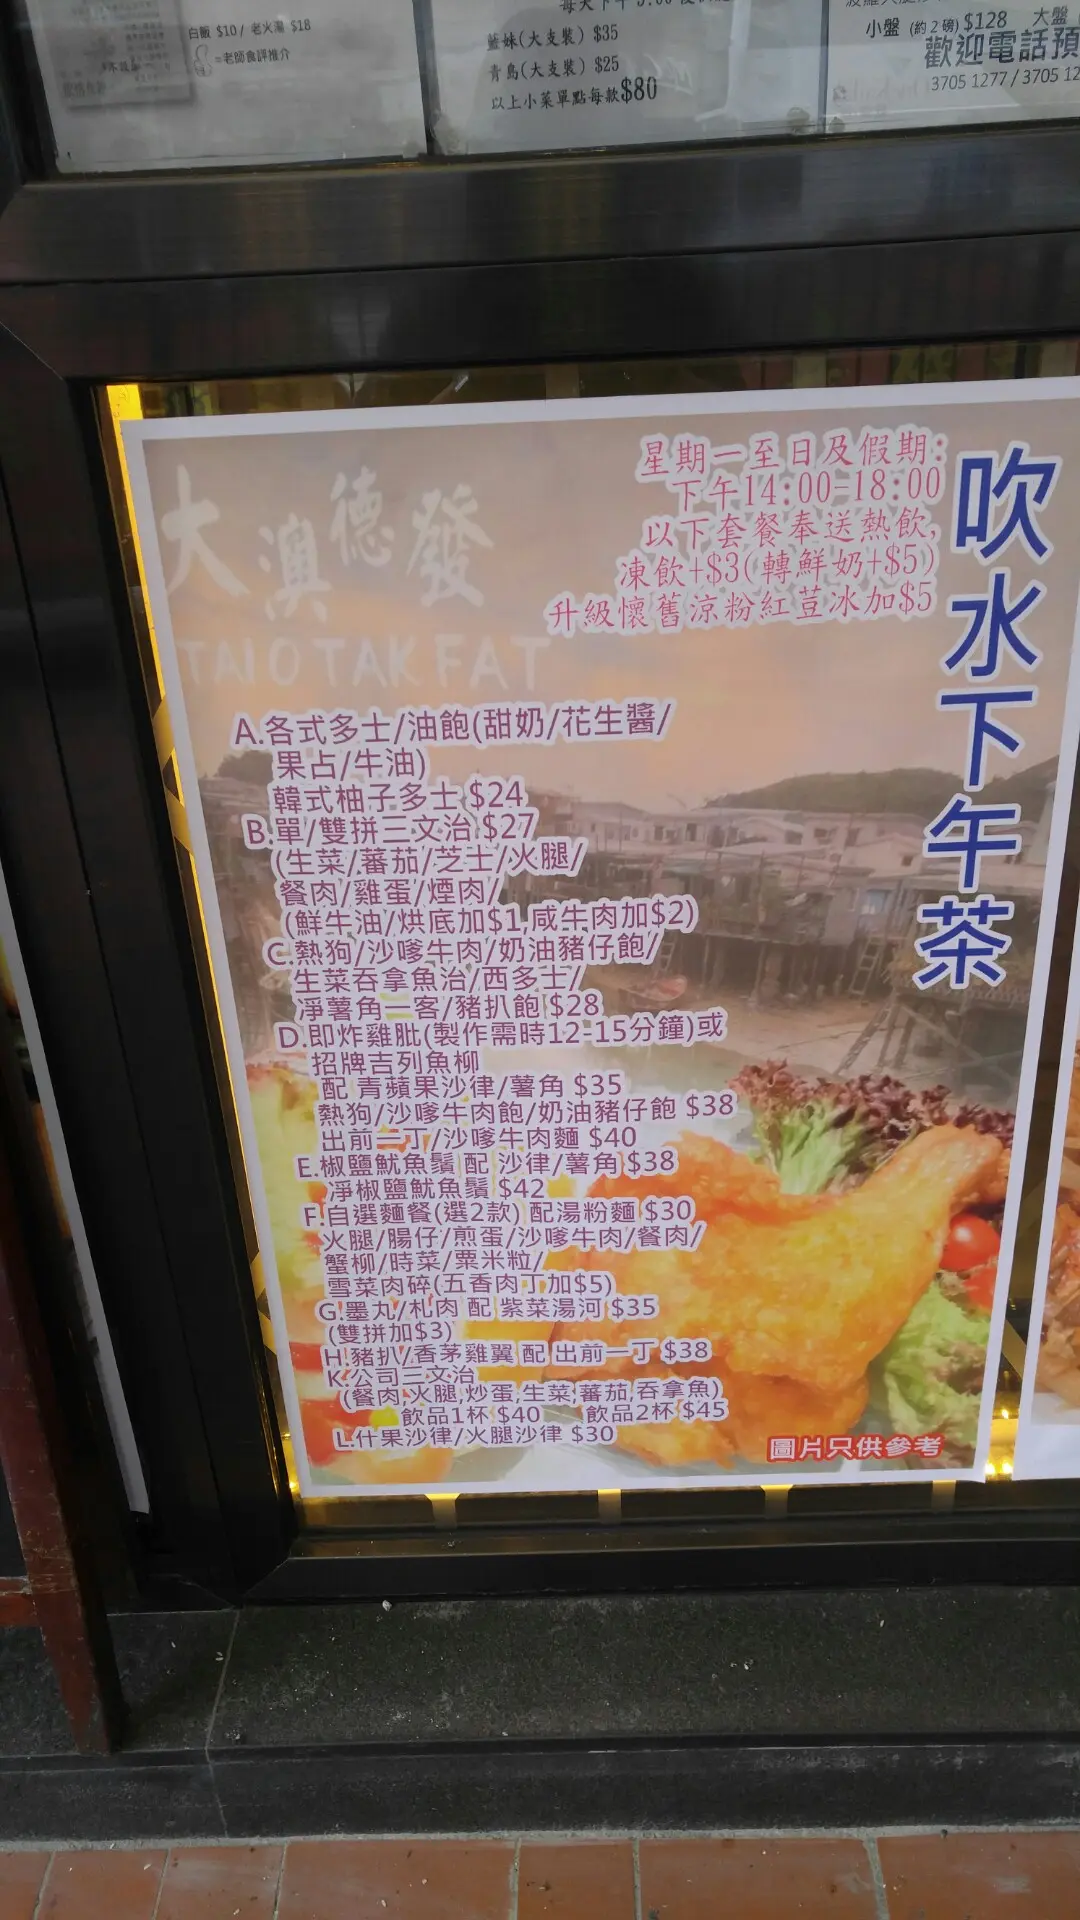 白飯 $10 / 老火湯 $18
=老師食評推介
藍妹(大支裝) $35
青島(大支裝) $25
以上小菜單點每款$80
小盤 (約2磅) $128 大盤
歡迎電話預
3705 1277 / 3705 12
大澳德發
TAI O TAK FAT
星期一至日及假期:
下午14:00-18:00
以下套餐奉送熱飲,
凍飲+$3(轉鮮奶+$5)
升級懷舊涼粉紅荳冰加$5
吹水下午茶
A.各式多士/油飽(甜奶/花生醬/
果占/牛油)
韓式柚子多士 $24
B.單/雙拼三文治 $27
(生菜/蕃茄/芝士/火腿/
餐肉/雞蛋/煙肉/
(鮮牛油/烘底加$1,咸牛肉加$2)
C.熱狗/沙嗲牛肉/奶油豬仔飽/
生菜吞拿魚治/西多士/
凈薯角一客/豬扒飽 $28
D.即炸雞肶(製作需時12-15分鐘)或
招牌吉列魚柳
配 青蘋果沙律/薯角 $35
熱狗/沙嗲牛肉飽/奶油豬仔飽 $38
出前一丁/沙嗲牛肉麵 $40
E.椒鹽魷魚鬚 配 沙律/薯角 $38
凈椒鹽魷魚鬚 $42
F.自選麵餐(選2款) 配湯粉麵 $30
火腿/腸仔/煎蛋/沙嗲牛肉/餐肉/
蟹柳/時菜/粟米粒/
雪菜肉碎(五香肉丁加$5)
G.墨丸/札肉 配 紫菜湯河 $35
(雙拼加$3)
H.豬扒/香茅雞翼 配 出前一丁 $38
K.公司三文治
(餐肉,火腿,炒蛋,生菜,蕃茄,吞拿魚)
飲品1杯 $40 飲品2杯 $45
L.什果沙律/火腿沙律 $30
圖片只供參考